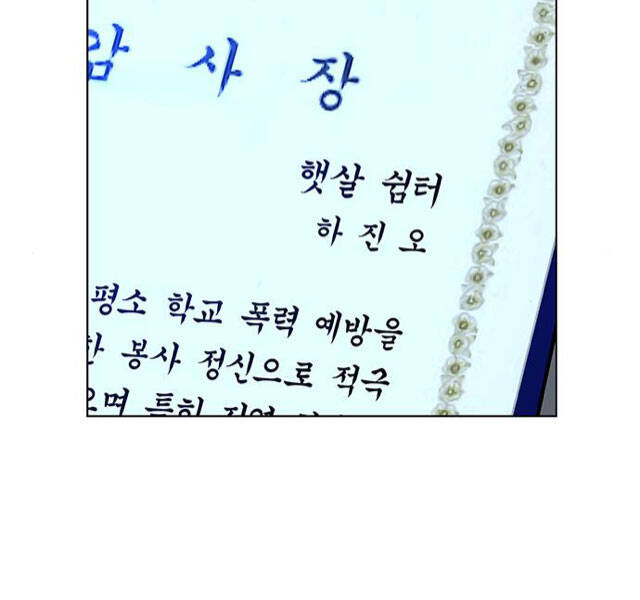 감 사 장
햇살 쉼터
하 진 오
평소 학교 폭력 예방을
한 봉사 정신으로 적극
으며 특히 지역